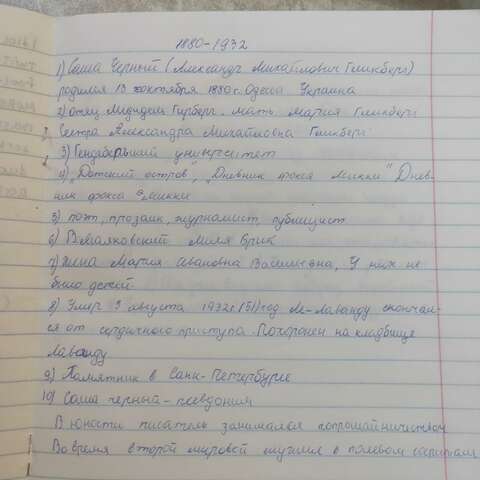 1880-1932
1) Саша Черный (Александр Михайлович Гликберг)
родился 13 октября 1880г. Одесса Украина
2) отец Менделя Гирберг. мать Мария Гликберг
Сестра Александра Михайловна Гликберг
3) Гендаберьший университет
4) "Детский остров", "Дневник фокса Микки" Днев-
ник фокса Микки
5) поэт, прозаик, журналист, публицист
6) В.Маяковский Лиля Брик
7) Жена Мария Ивановна Васильевна, У них не
было детей
8) Умер 5 августа 1932г. (51) год Ле-Лаванду скончал-
ся от сердечного приступа. Похоронен на кладбище
Лаванду
9) Памятник в Санк-Петербурге
10) Саша черный - псевдоним
В юности писатель занимался попрошайничеством
Во время второй мировой служил в полевом госпитале